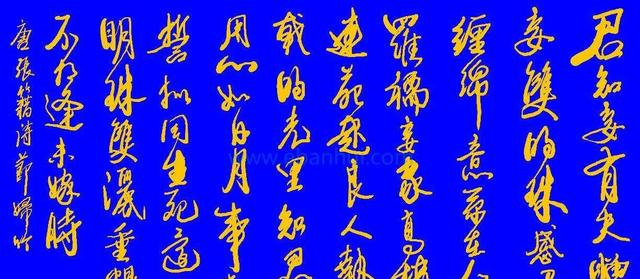 君知妾有夫贈
妾雙明珠感
纏綿意繫在
羅襦妾家高樓
連苑起良人執
戟明光里知君
用心如日月事
誓擬同生死還
明珠雙淚垂恨
不相逢未嫁時
唐張籍詩節婦吟